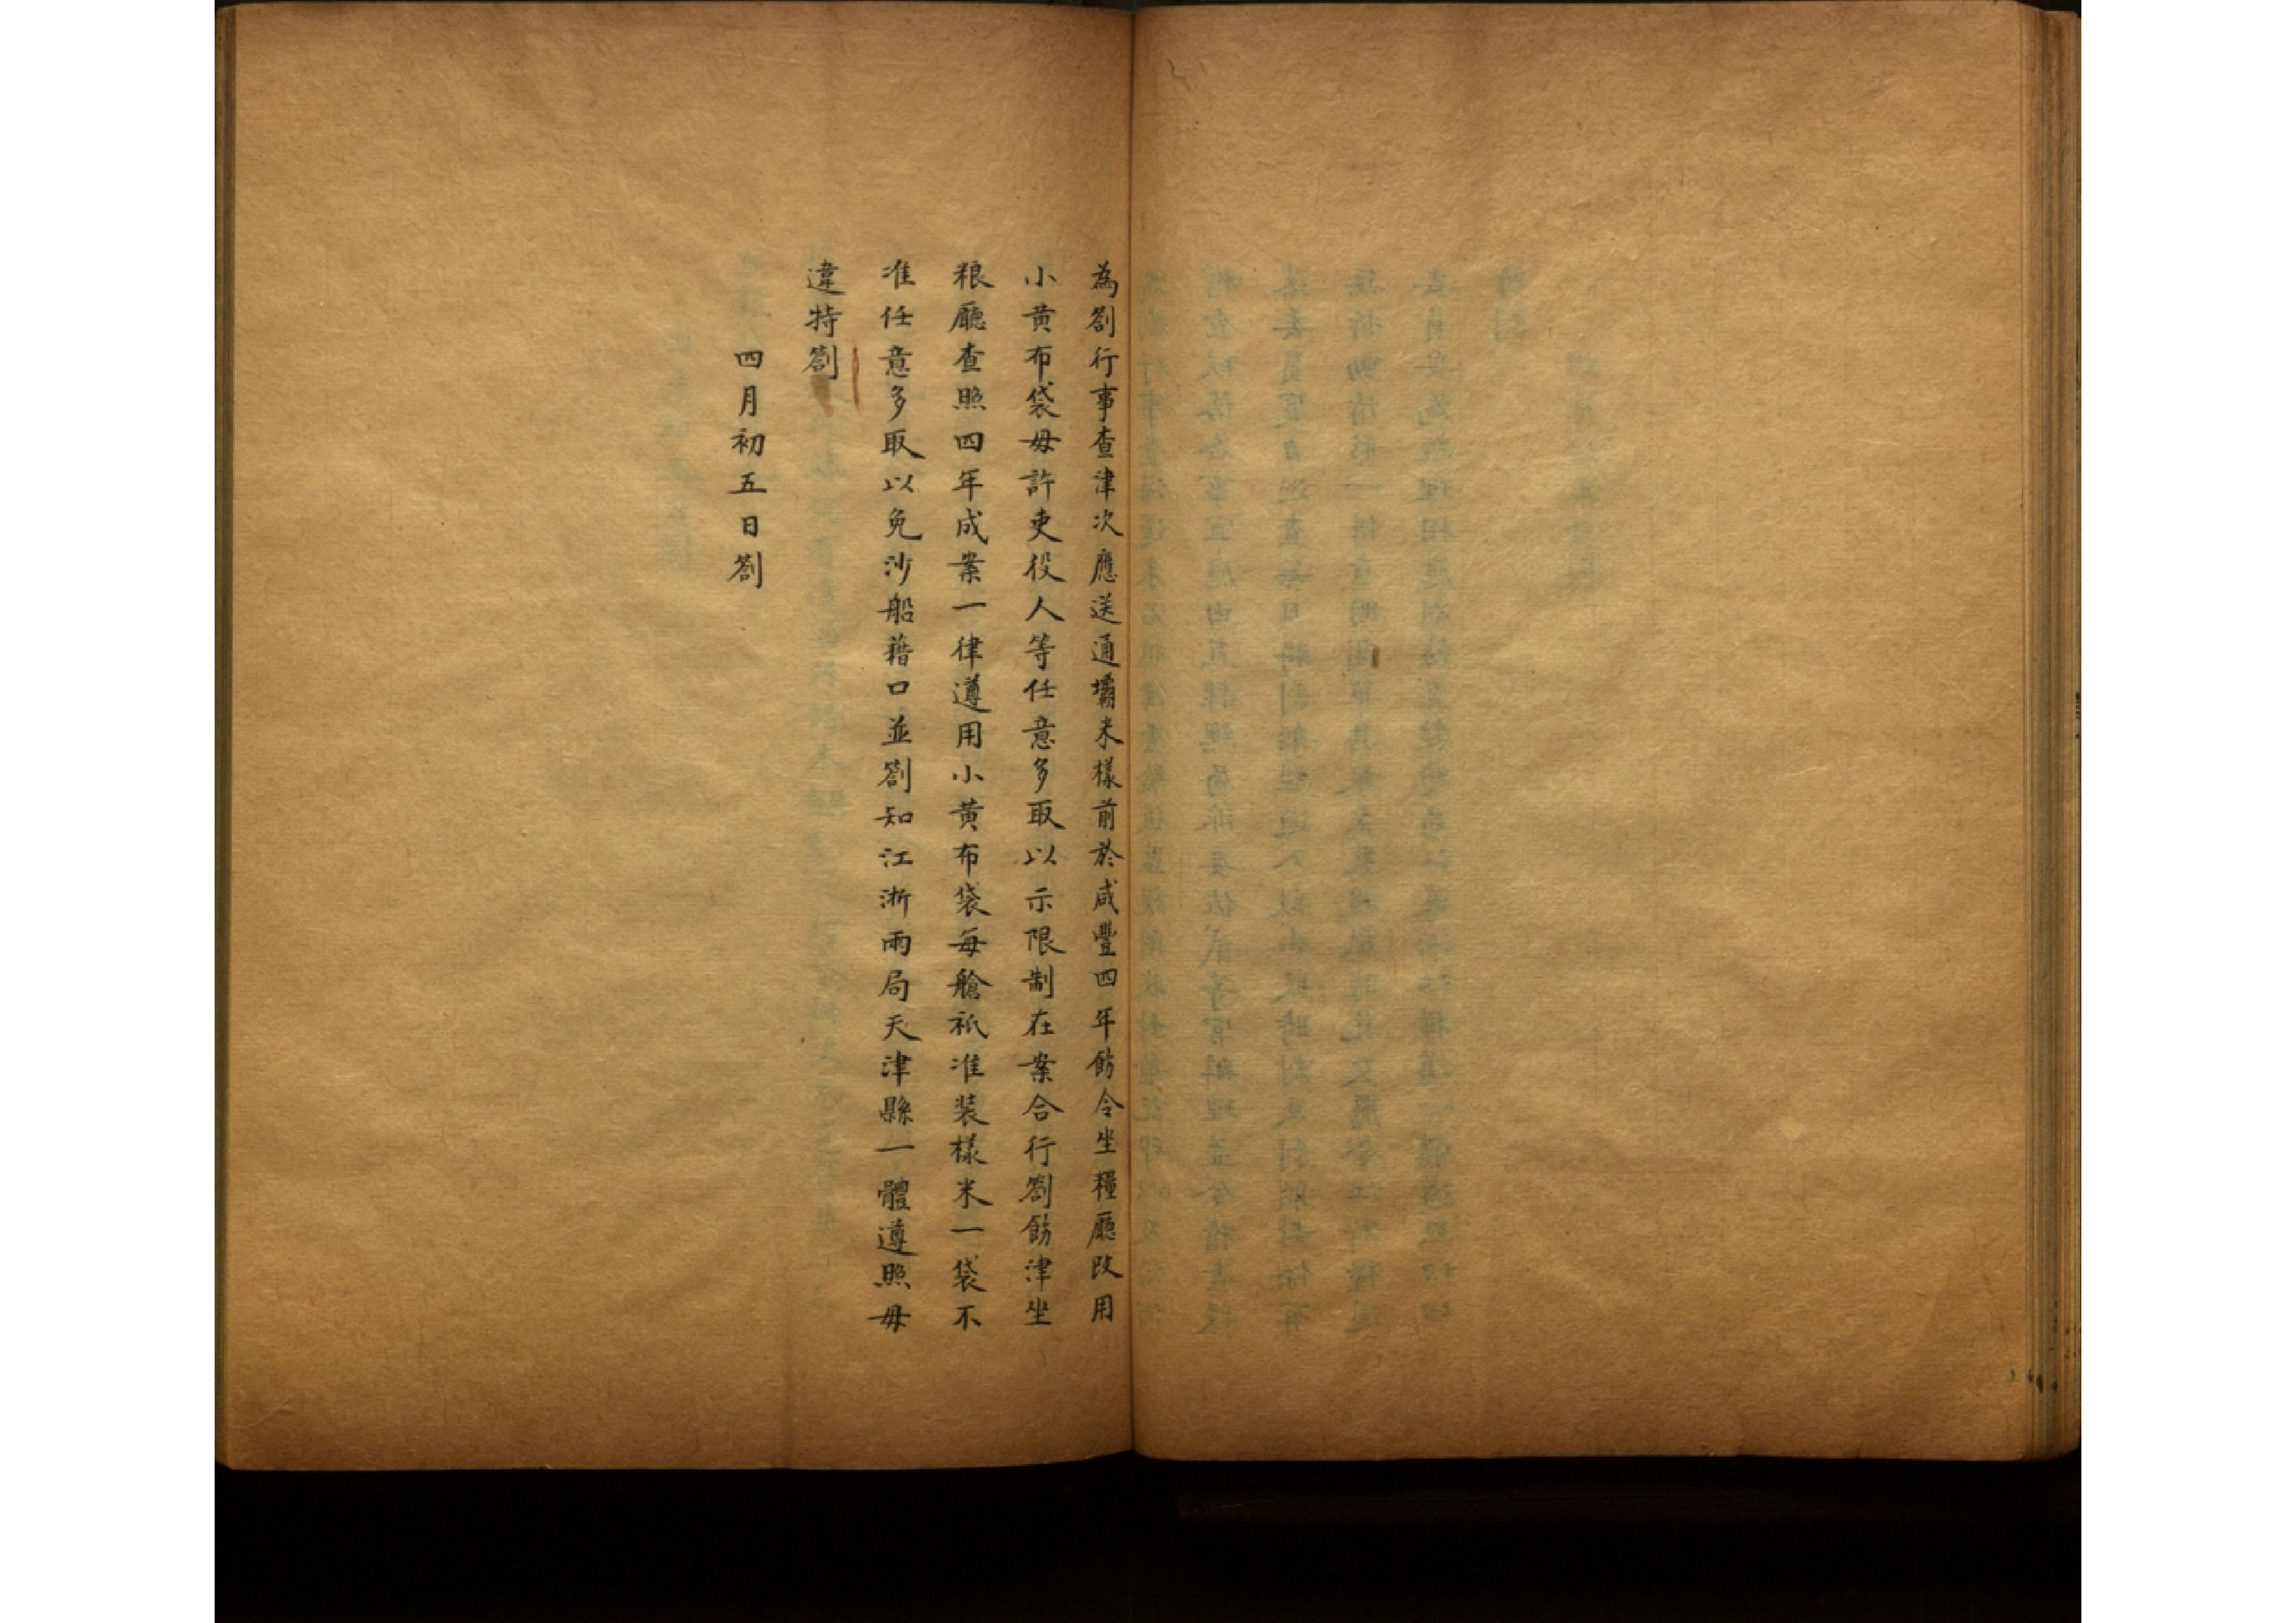 為劄行事查津次應送通壩米樣前於咸豐四年飭令坐糧廳改用
小黄布袋毋許吏役人等任意多取以示限制在案合行劄飭津坐
粮廳查照四年成案一律遵用小黄布袋每艙祇准装樣米一袋不
准任意多取以免沙船藉口並劄知江浙兩局天津縣一體遵照毋
違特劄
四月初五日劄